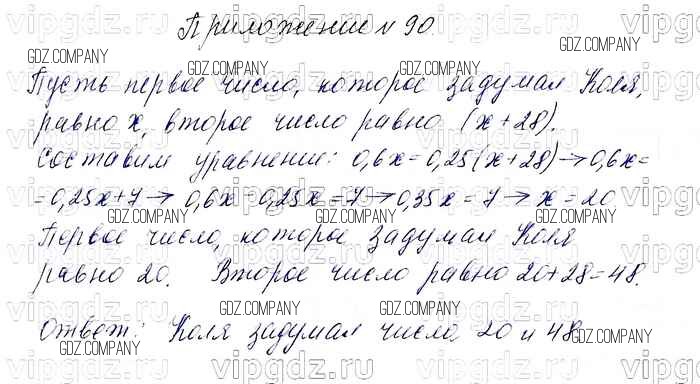 Приложение N 90.
Пусть первое число, которое задумал Коля,
равно x, второе число равно (x+28).
Составим уравнение: 0,6x=0,25(x+28)→0,6x=
=0,25x+7→ 0,6x-0,25x=7→0,35x=7→x=20
Первое число, которое задумал Коля
равно 20. Второе число равно 20+28=48.
Ответ: Коля задумал число 20 и 48